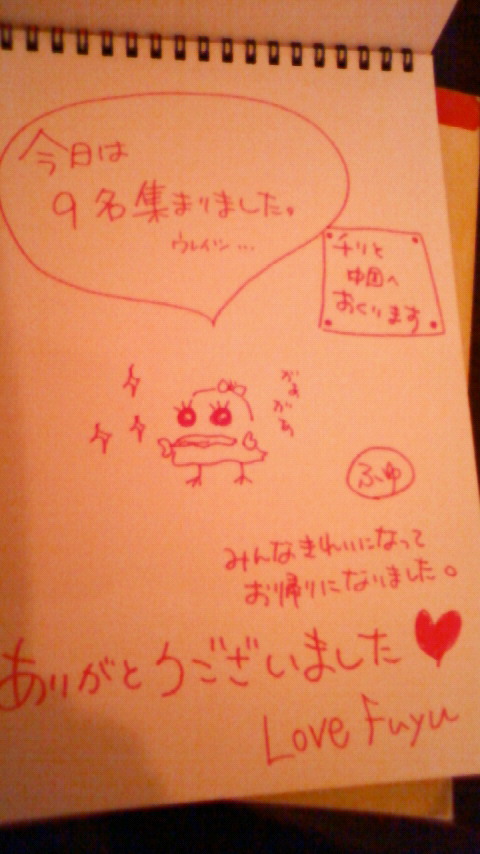 今日は
9名集まりました。
ウレイシン…
チリと
中国へ
おくります
があ
があ
ふゆ
みんなきれいになって
お帰りになりました。
ありがとうございました
Love Fuyu